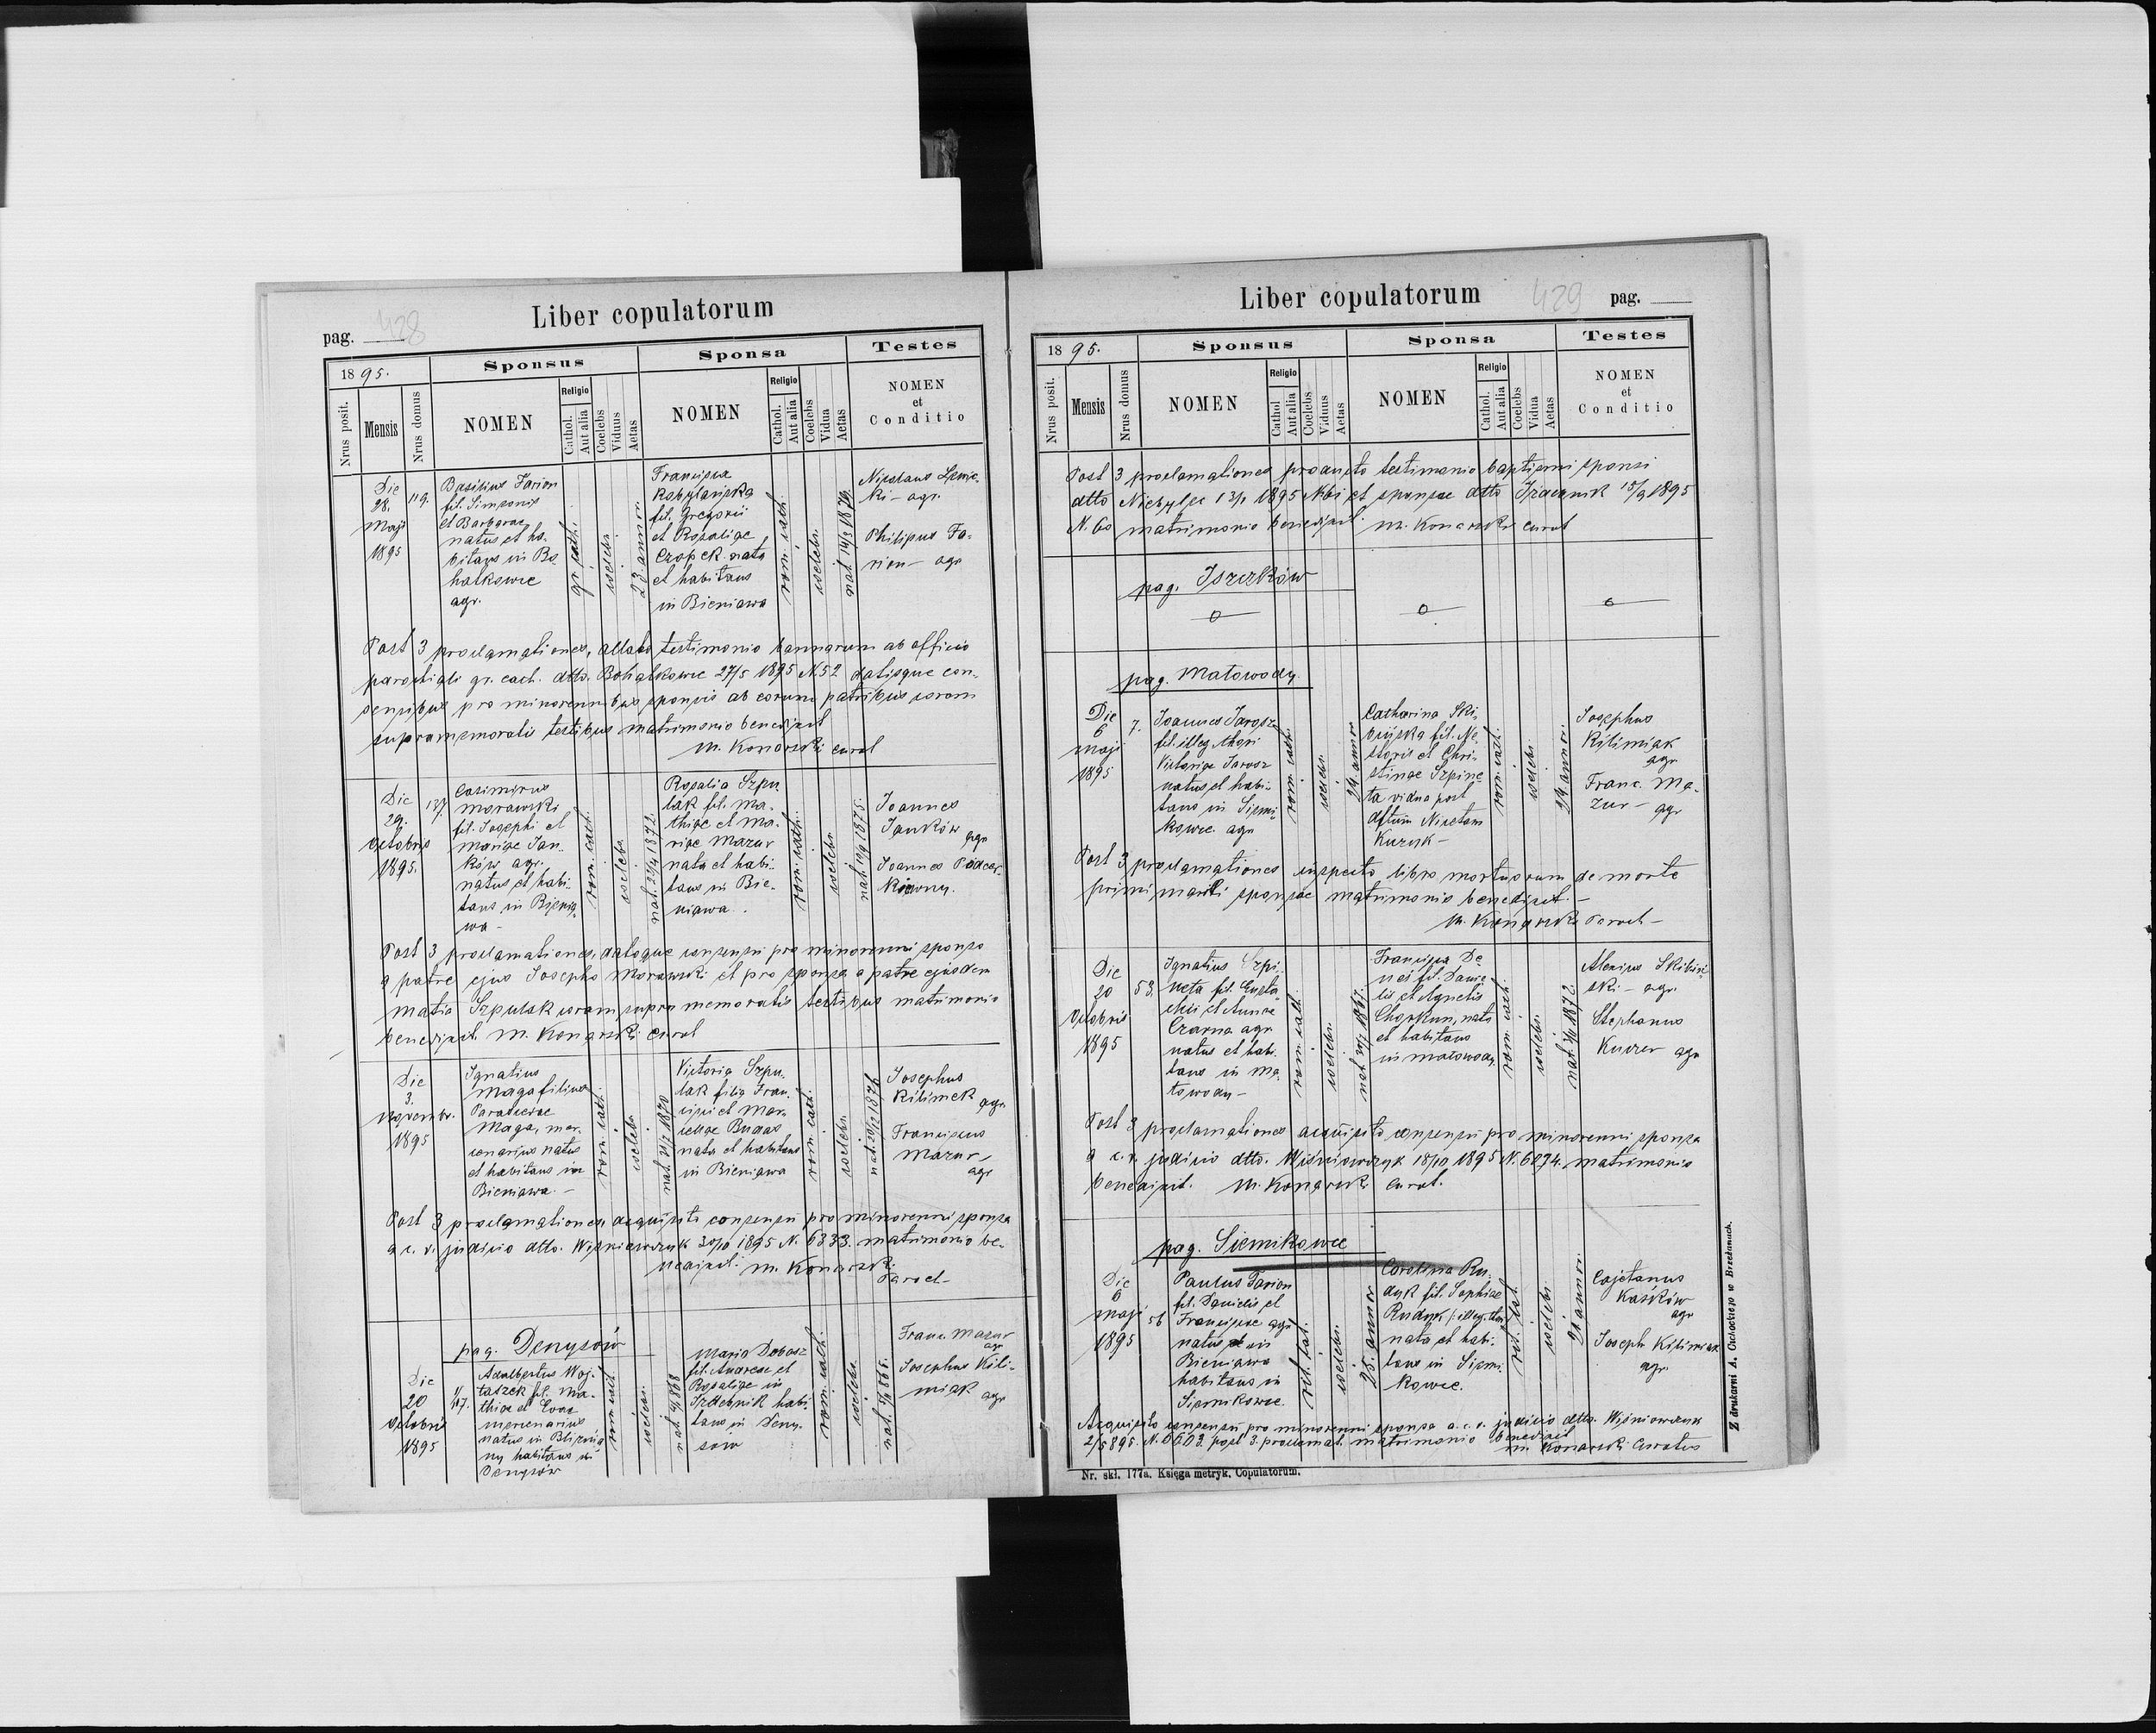 Liber copulatorum
pag. 428
18 95.
Sponsus
Sponsa
Testes
Nrus posit.
Mensis
Nrus domus
NOMEN
Religio
Cathol.
Aut alia
Coelebs
Viduus
Aetas
NOMEN
Religio
Cathol.
Aut alia
Coelebs
Vidua
Aetas
NOMEN
et
Conditio
Die
28.
Maji
1895
119.
Basilius Farion
fil. Simeonis
et Barbarae
natus et ha-
bitans in Bo
hatkowce
agr.
gr. cath.
coelebs.
23 annor.
Francisca
Kobylańska
fil. Gregorii
et Rosaliae
Czopek nata
et habitans
in Bieniawa
rom. cath.
coelebs.
nat. 14/3 1879.
Nicolaus
ki - agr.
Philipus Fa-
rion - agr
Post 3 proclamationes, allato testimonio bannorum ab officio
parochiali gr. cath. dtto. Bohatkowce 27/5 1895 N. 52 datisque con-
sensibus pro minorennibus sponsis ab eorum patribus coram
supramemoratis testibus matrimonio benedixit
M. Konarski curat
Die
29.
Octobris
1895.
137.
Casimirus
Morawski
fil. Josephi et
Mariae Jan-
ków agr.
natus et habi-
tans in Bienia
wa -
rom. cath.
coelebs
nat. 24/4 1872.
Rosalia Szpu
lak fil. Ma-
thiae et Ma-
riae Mazur
nata et habi-
tans in Bie-
niawa.
rom. cath.
coelebs.
nat. 10/9 1875.
Joannes
Janków
agr
Joannes
Post 3 proclamationes, datoque consensu pro minorenni sponso
a patre ejus Josepho Morawski et pro sponsa a patre ejusdem
Matia Szpulak coram supra memoratis testibus matrimonio
benedixit. M. Konarski curat
Die
3.
Novembr.
1895
Ignatius
Maga filius
Parasceae
Maga, mer-
cenarius natus
et habitans in
Bieniawa. -
rom. cath.
coelebs.
nat. 31/7 1870
Victoria Szpu-
lak filia Fran-
cisci et Mar-
cellae Budas
nata et habitans
in Bieniawa
rom. cath.
coelebs.
Josephus
Kilimek agr.
Franciscus
Mazur -
agr
Post 3 proclamationes, acquisito consensu pro minorenni sponsa
a c. r. judicio dtto. Wiśniowczyk 30/10 1895 N. 6333. matrimonio be-
nedixit. M. Konarski
Paroch -
pag. Denysów
Die
20
Octobris
1895
Adalbertus Woj-
taszek fil. Ma-
thiae et Evae
mercenarius
natus in
habitans in
Denysów
rom. cath.
coelebs.
Maria Dobosz
fil. Andreae et
Rosaliae in
Izdebnik habi
tans in Deny-
sów
rom. cath.
coelebs.
Franc. Mazur
agr
Josephus Kili-
miak agr
Liber copulatorum
429 pag.
18 95.
Sponsus
Sponsa
Testes
Nrus posit.
Mensis
Nrus domus
NOMEN
Religio
Cathol
Aut alia
Coelebs
Viduus
Aetas
NOMEN
Religio
Cathol.
Aut alia
Coelebs
Vidua
Aetas
NOMEN
et
Conditio
Post 3 proclamationes producto testimonio baptismi sponsi
dtto 1895 et sponsae dtto Izdebnik 15/9 1895
N. 60 matrimonio benedixit. M. Konarski curat
pag. Iszczków
o
o
o
pag. Małowody
Die
6
Maji
1895
7.
Joannes Jarosz
fil. illeg. thori
Victoriae Jarosz
natus et habi-
tans in Siemi-
kowce. agr
rom. cath.
coelebs.
24 annor.
Catharina Ski-
bińska fil. Ne-
storis et Chri-
stinae Szpine
ta vidua post
dftum Nicetam
Kuzyk -
rom. cath.
coelebs.
29 annor.
Josephus
Kilimiak
agr
Franc. Ma-
zur - agr
Post 3 proclamationes inspecto libro mortuorum de morte
primi mariti sponsae matrimonio benedixit. -
M. Konarski Paroch -
Die
20
Octobris
1895
53.
Ignatius Szpi-
neta fil. Eusta-
chii et Annae
Czarna agr
natus et habi-
tans in Ma-
łowody -
rom. cath.
coelebs.
nat 30/7 1867.
Francisca De
neś fil. Danie-
lis et Agnetis
Chorkun, nata
et habitans
in Małowody
rom. cath.
coelebs.
Alexius Skibiń
ski - agr.
Stephanus
Kuzer agr
Post 3 proclamationes acquisito consensu pro minorenni sponsa
a c. r. judicio dtto. Wiśniowczyk 18/10 1895 N. 6074. matrimonio
benedixit. M. Konarski Curat.
pag. Siemikowce
Die
6
Maji
1895
56
Paulus Farion
fil. Danielis et
Franciscae agr
natus in
Bieniawa
habitans in
Siemikowce.
rit. lat.
coelebs.
25 annor.
Carolina Ru-
dyk fil. Sophiae
Rudyk /: illeg. thori
nata et habi-
tans in Siemi-
kowce.
rit. lat.
coelebs.
21 annor.
Cajetanus
Kaśków
agr
Joseph Kilimiak
agr.
Acquisito consensu pro minorenni sponsa a c. r. judicio dtto. Wiśniowczyk
2/5 895. N. 6603. post 3. proclamat. matrimonio benedixit
M. Konarski Curatus
Nr. skł. 177a. Księga metryk. Copulatorum.
Z drukarni A. Cichockiego w Brzeżanach.